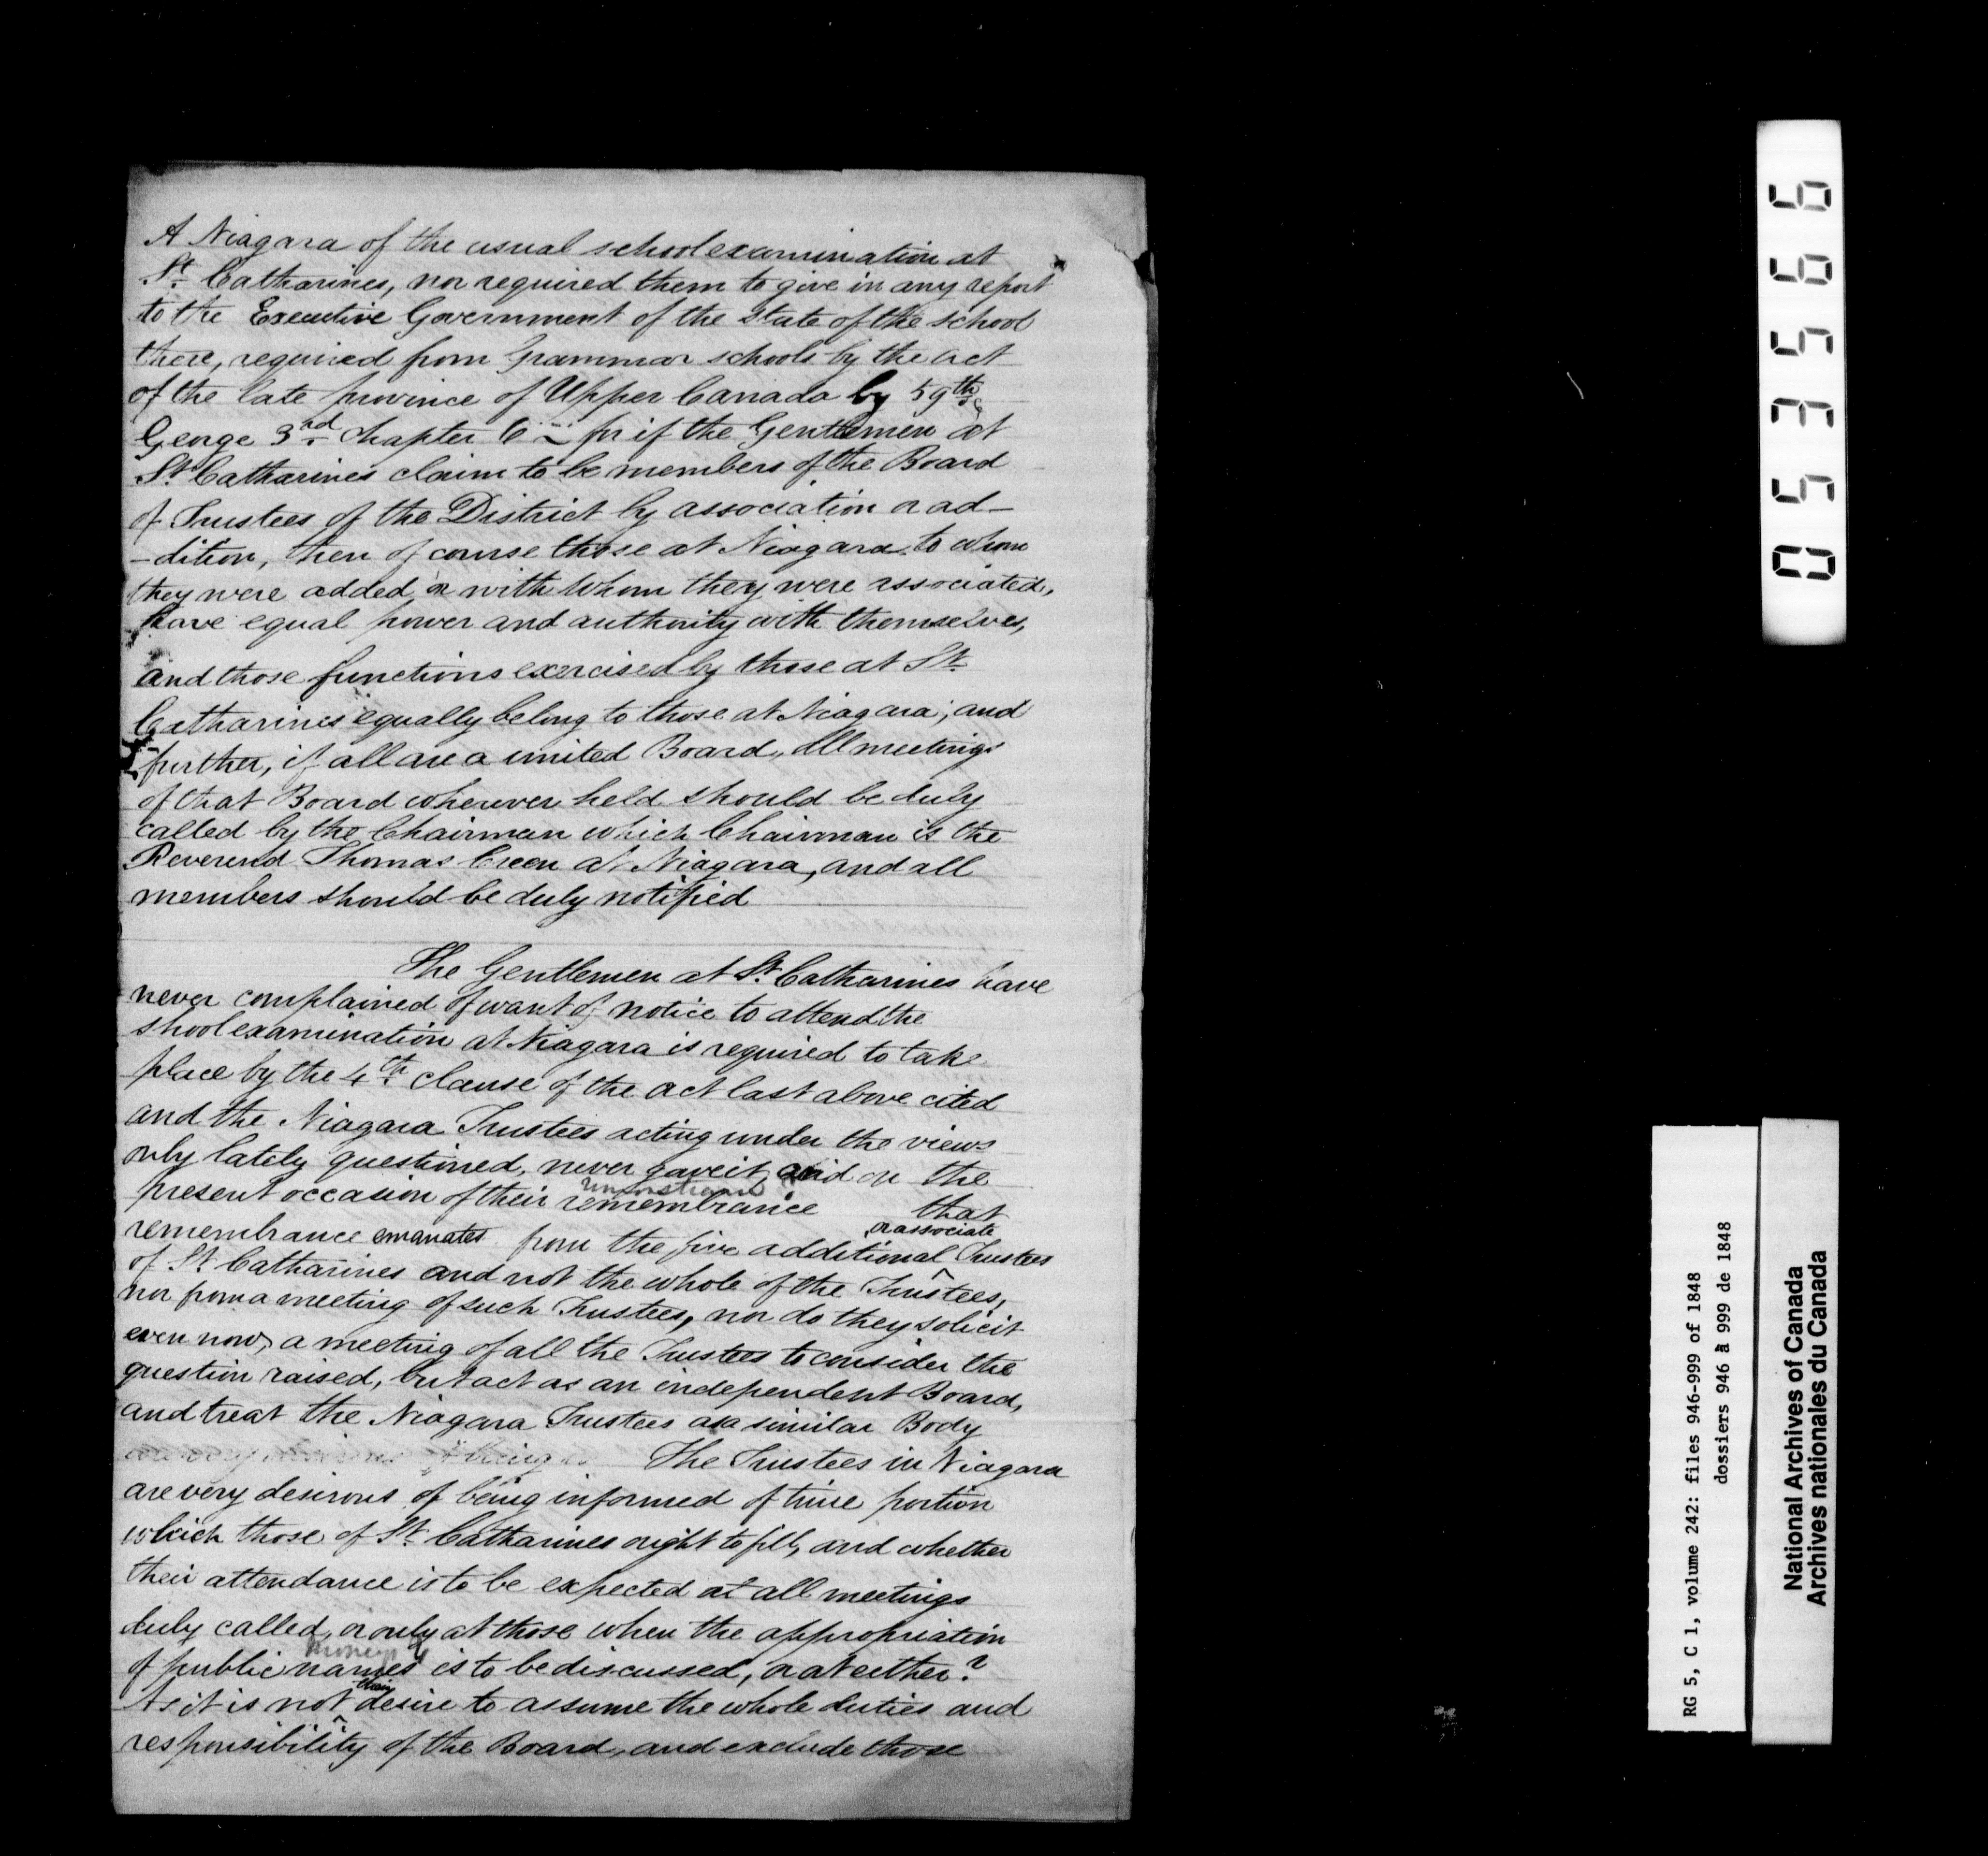 A Niagara of the usual school examination at
St. Catharines, nor required them to give in any report
to the Executive Government of the state of the school
there, required from Grammar schools by the act
of the late province of Upper Canada by 59th
George 3rd chapter 6 for if the Gentlemen at
St. Catharines claim to be members of the Board
of Trustees of the District by association or ad-
-dition, then of course those at Niagara to whom
they were added or with whom they were associated,
have equal power and authority with themselves,
and those functions exercised by those at St.
Catharines equally belong to those at Niagara, and
further, if all are a united Board, all meetings
of that Board wherever held should be duly
called by the Chairman which Chairman is the
Reverend Thomas Creen at Niagara, and all
members should be duly notified
The Gentlemen at St. Catharines have
never complained of want of notice to attend the
shool examination at Niagara is required to take
place by the 4th clause of the act last above cited
and the Niagara Trustees acting under the views
only lately questioned, never gave it, and on the
remonstrance
present occasion of their remembrance that
or associate
remembrance emanates from the five additional Trustees
of St. Catharines and not the whole of the Trustees,
nor from a meeting of such Trustees, nor do they solicit
even now, a meeting of all the Trustees to consider the
question raised, but act as an independent Board,
and treat the Niagara Trustees as a similar Body
The Trustees in Niagara
are very desirous of being informed of true portion
which those of St. Catharines ought to fill, and whether
their attendance is to be expected at all meetings
duly called, or only at those when the appropriation
moneys
of public names is to be discussed, or at either?
their
As it is not desire to assume the whole duties and
responsibility of the Board, and exclude those
053566
RG 5, C 1, volume 242: files 946-999 of 1848
dossiers 946 à 999 de 1848
National Archives of Canada
Archives nationales du Canada